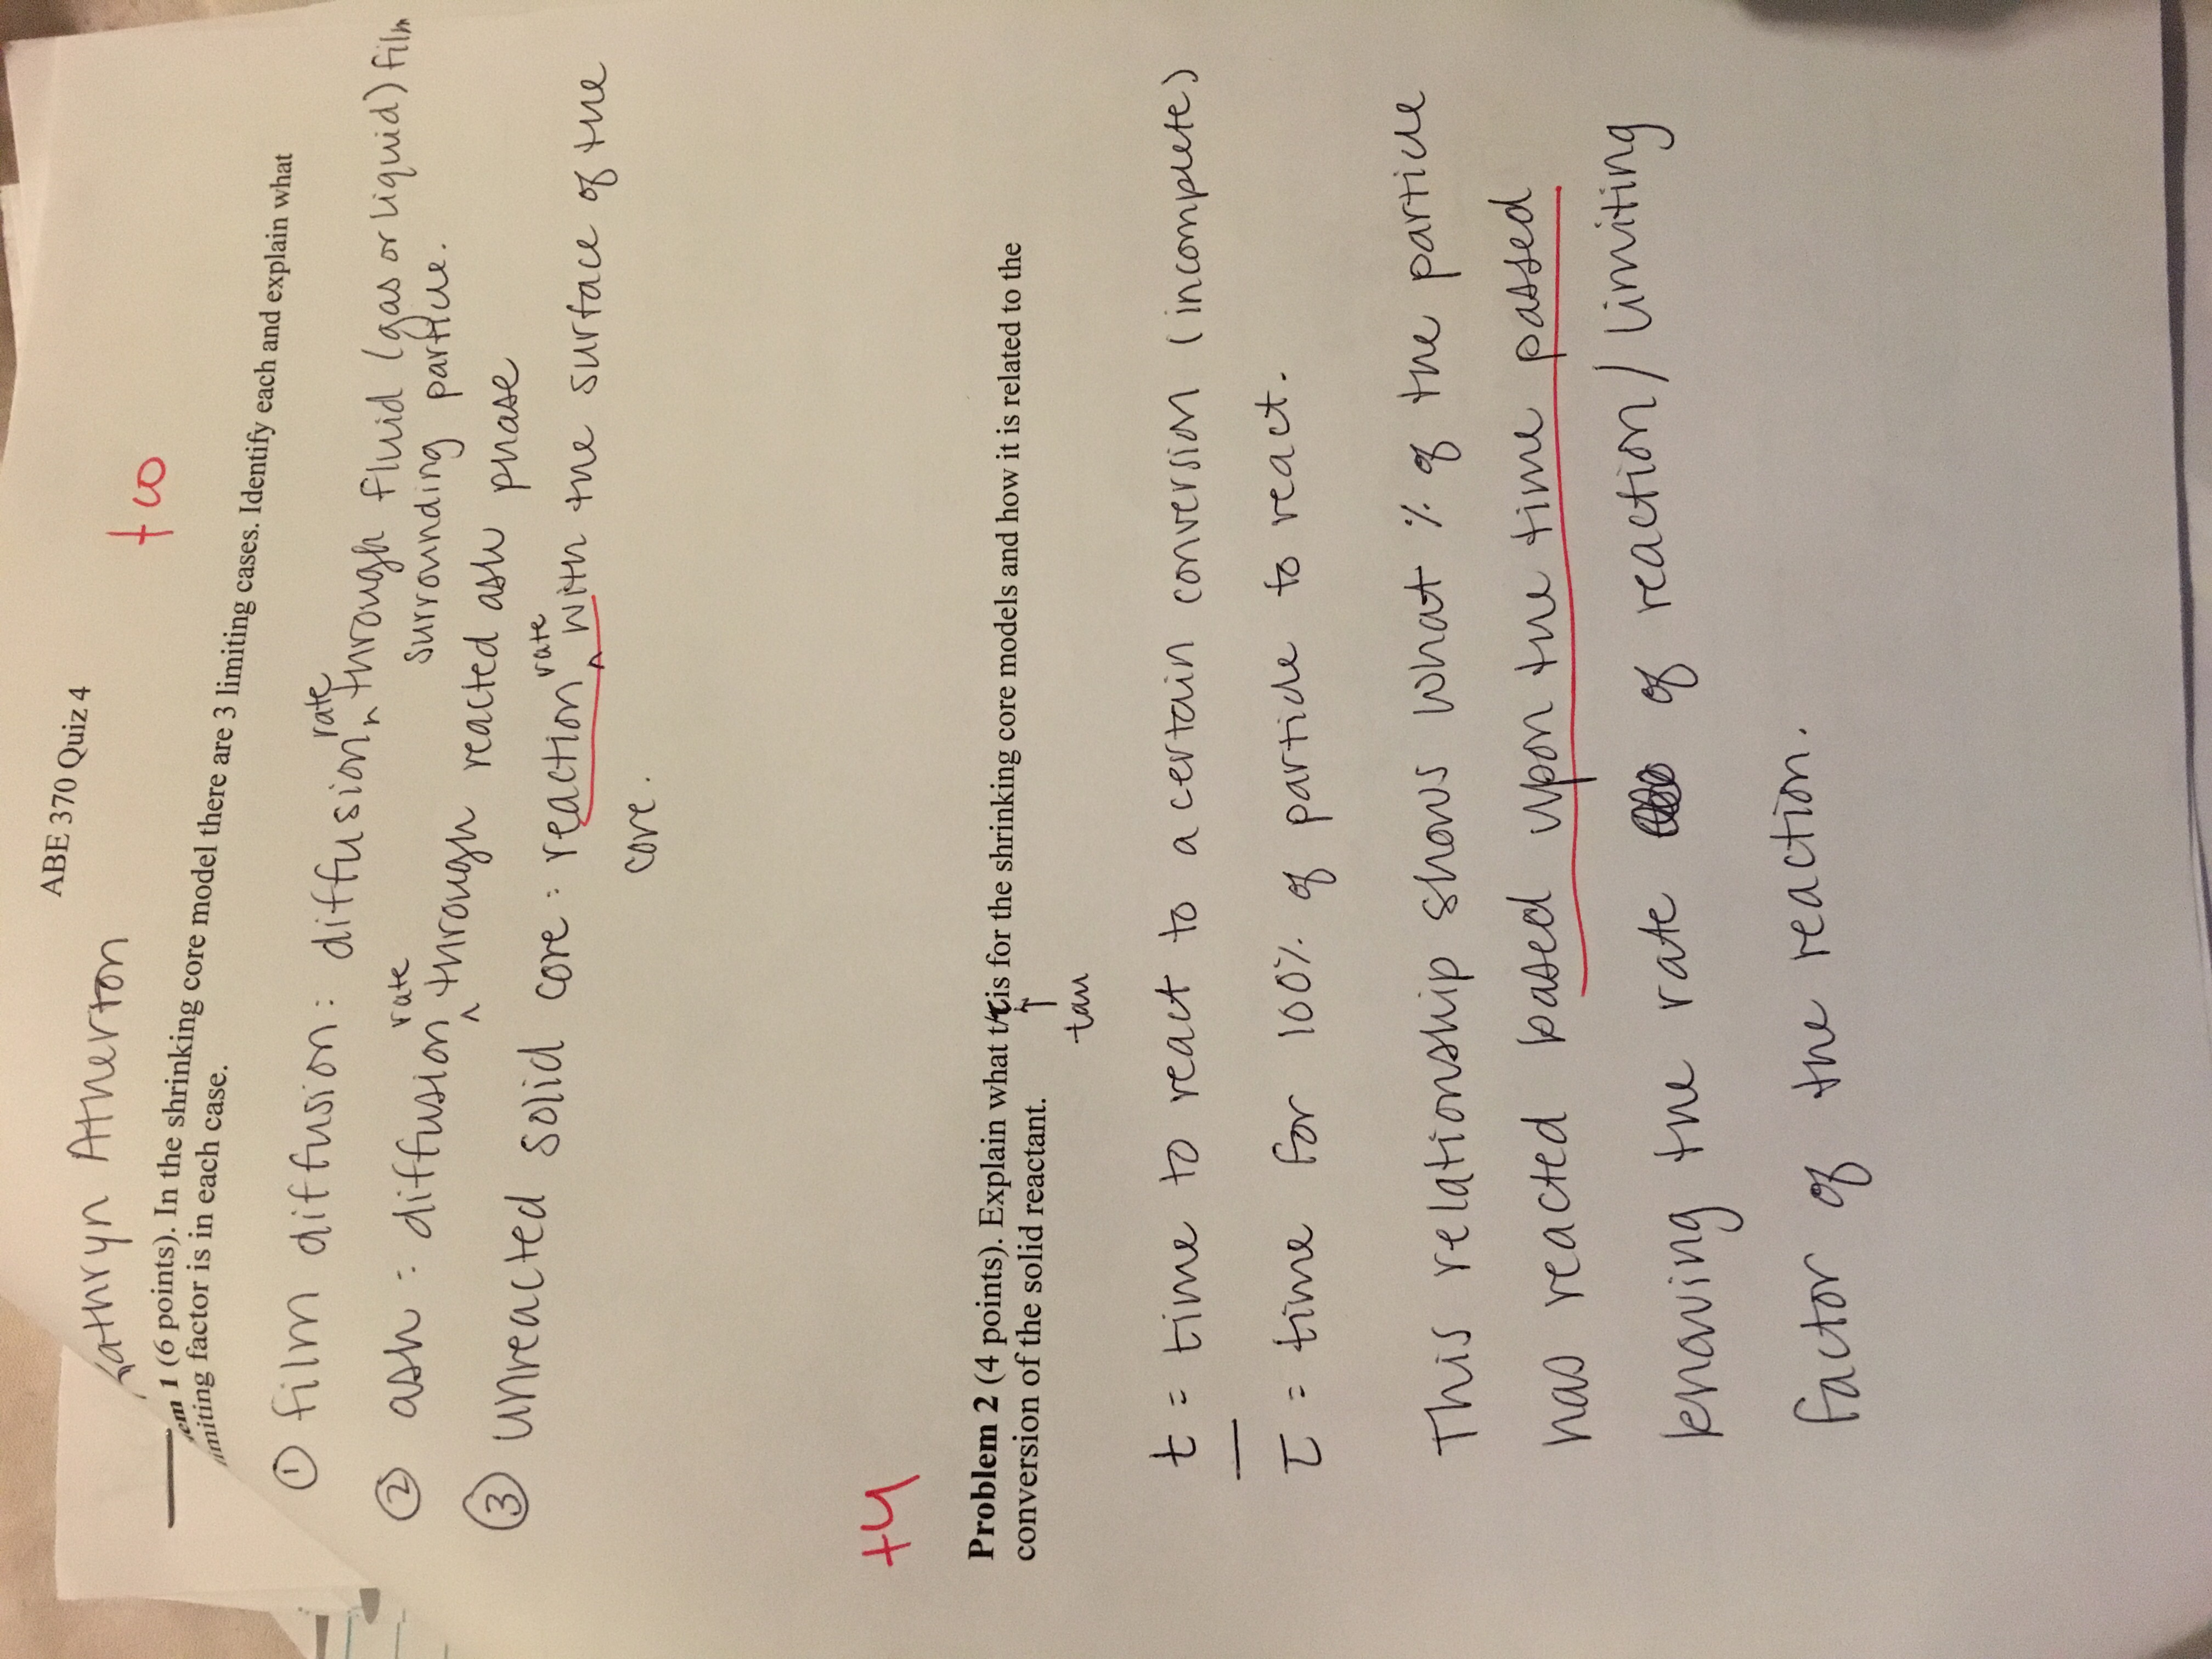 ABE 370 Quiz 4
Kathryn Atherton
+6
em 1 (6 points). In the shrinking core model there are 3 limiting cases. Identify each and explain what
imiting factor is in each case.
① film diffusion: diffusion rate through fluid (gas or liquid) film
surrounding particle.
② ash: diffusion rate through reacted ash phase
③ unreacted solid core: reaction rate with the surface of the
core.
+4
Problem 2 (4 points). Explain what t/τ is for the shrinking core models and how it is related to the
conversion of the solid reactant.
↑
tau
t = time to react to a certain conversion (incomplete)
τ = time for 100% of particle to react.
This relationship shows what % of the particle
has reacted based upon the time passed
knowing the rate of reaction/limiting
factor of the reaction.